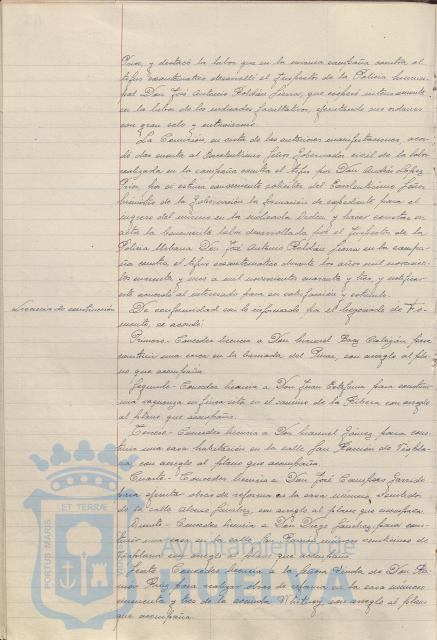 Prior, y destacó la labor que en la misma campaña contra el
tifus exantemático desarrolló el Inspector de la Policía Munici-
pal Don José Antonio Roldán Sierra, que cooperó intensamente
en la labor de los indicados facultativos, ejecutando sus ordenes
con gran celo y entusiasmo.
La Comisión, en vista de las anteriores manifestaciones, acor-
dó dar cuenta al Excelentísimo Señor Gobernador civil de la labor
realizada en la campaña contra el tifus por Don Andrés López
Prior, por si estima conveniente solicitar del Excelentísimo Señor
Ministro de la Gobernación la formación de expediente para el
ingreso del mismo en la indicada Orden y hacer constar en
acta la benemérita labor desarrollada por el Inspector de la
Policía Urbana Don José Antonio Roldán Sierra en la campa-
ña contra el tifus exantemático durante los años mil novecien-
tos cuarenta y uno a mil novecientos cuarenta y tres, y notificar
este acuerdo al interesado para su satisfacción y estímulo.
Licencias de construcción
De conformidad con lo informado por el Negociado de Fo-
mento, se acordó:
Primero.- Conceder licencia a Don Manuel para
construir una cerca en la barriada del , con arreglo al pla-
no que acompaña.
Segundo.- Conceder licencia a Don Juan para construir
una en finca sita en el camino de la Ribera con arreglo
al plano que acompaña.
Tercero.- Conceder licencia a Don Manuel Gómez para cons-
truir una casa habitación en la calle San Ramón de
, con arreglo al plano que acompaña.
Cuarto.- Conceder licencia a Don José Garrido
para ejecutar obras de reforma en la casa número
de la calle Alonso Sánchez, con arreglo al plano que acompaña.
Quinto.- Conceder licencia a Don Diego Sánchez, para cons-
truir una casa en la calle
con arreglo al plano que acompaña.
Sexto.- Conceder licencia a la Viuda de Don
Ruiz para realizar obras de reforma en la casa número
cincuenta y tres de la avenida con arreglo al plano
que acompaña.
PORTUS MARIS ET TERRÆ
Ayuntamiento de
HUELVA